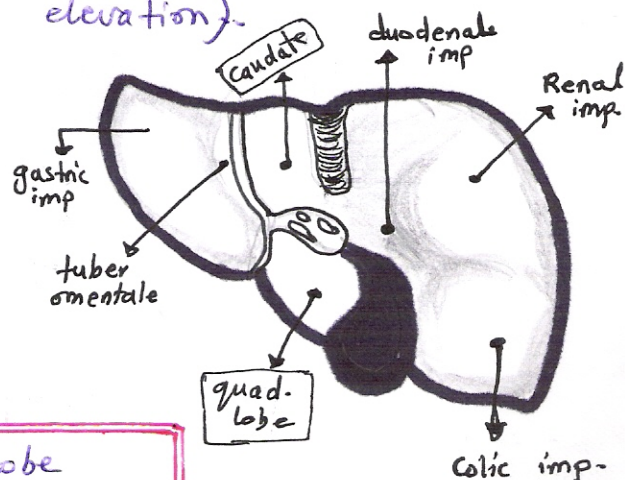 elevation).
caudate
duodenale
imp
Renal
imp.
gastric
imp
tuber
omentale
quad-
lobe
Colic imp-
obe